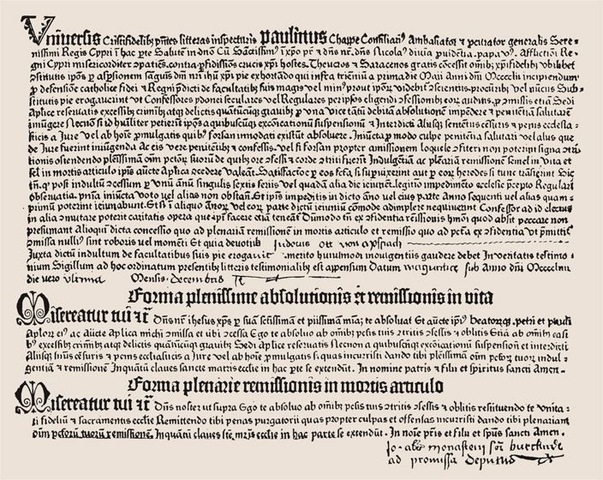 Vniuersis Cristifidelibus pñtes litteras inspecturis Paulinus Chappe Consiliariꝰ Ambasiator et procurator generalis Sere-
nissimi Regis Cypri ī hac ꝑte Salutē in dño Cū Sanctissimꝰ ī xp̄o pr̄ et dñs nr̄. dñs Nicolaꝰ diuīa ꝓuidētia. papa vꝰ. Afflictiōi Re-
gni Cypri misericorditer ꝯpatiēs. contra ꝑfidissimos crucis xp̄i hostes. Theucros et Saracenos gratis cōcessit omībꝰ xp̄ifidelibꝰ vbilibet
ꝯstitutis ipōs ꝑ aspersionem sāguīs dñi nr̄i ihū xp̄i pie exhortādo qui infra trieniū a prima die Maii Anni dñi Mcccclii incipiendum
ꝓ defensiōe catholice fidei et Regni pdicti de facultatibꝰ suis magis vel minꝰ prout ipōꝝ videbit ꝯscientiis ꝓcuratoribꝰ vel nūciis Sub-
stitutis pie erogauerint vt Confessores ydonei seculares vel Regulares per ipsos eligendi ꝯfessionibꝰ eoꝝ auditis. ꝓ ꝯmissis etiā Sedi
Aplice reseruatis excessibꝰ criminibꝰ atqꝫ delictis quātūcūqꝫ grauibꝰ ꝓ vna vice tātū debitā absolutionē impendere et penitētiā salutarē
iniūgere Necnō si id humiliter petierīt ipōs a quibuscūqꝫ excōicationū suspensionū et Interdicti Aliisqꝫ sentētiis cēsuris et penis ecclesiasti-
cis a Jure vel ab hoīe ꝓmulgatis quibꝰ forsan innodati existūt absoluere. Iniūcta ꝓ modo culpe penitētia salutari vel aliis que
de Jure fuerint iniūgenda Ac eis vere penitētibꝰ et confessis. vel si forsan propter amissionem loquele ꝯfiteri non poterint signa ꝯtri-
tionis ostendendo plenissimā oīm pctōꝝ suoꝝ de quibꝰ ore ꝯfessi et corde ꝯtriti fuerīt Indulgētiā ac plenariā remissionē semel in vita et
sel in mortis articulo ipīs aucte Aplica ꝯcedere valeāt. Satisfactōe ꝑ eos fcā si suꝑuixerīt aut ꝑ eoꝝ heredes si tūc trāsierīt Sic
tn̄. qꝫ post indultū ꝯcessum ꝑ vnū annū singulis sextis feriis vel quadā alia die ieiunēt. legitīo impedimēto ecclesie ꝓcepto Regulari
obseruātia. pn̄ia iniūcta voto vel alias non obstan̄. Et ipīs impeditis in dicto āno vel eius parte anno sequenti vel alias quam
primū poterint ieiunabūt. Et si ī aliquo ānoꝝ. vel eoꝝ parte dictū ieiuniū cōmode adimplere nequiuerint Confessor ad id electus
in alia ꝯmutare poterit caritatis opera que ipī facere etiā teneāt Dūmodo tn̄ ex ꝯfidentia remissionis hmōi quod absit peccare non
presumant Alioqui dicta concessio quo ad plenariā remissionē in mortis articulo et remissio quo ad pctā ex ꝯfidētia vt pmittit ꝯ-
missa nulliꝰ sint roboris vel momēti Et quia deuotus Judocus Ott von Apspach
Juxta dictū indultum de facultatibus suis pie erogauit merito huiusmodi indulgentiis gaudere debet In veritatis testimo-
nium Sigillum ad hoc ordinatum presentibꝰ litteris testimonialibꝰ est appensum Datum Maguntie sub Anno dñi Mcccclliiii
die vero vltima Mensis decembris
Forma plenissime absolutionis et remissionis in vita
Misereatur tui ꝛc Dñs nr̄ ihesus xp̄s ꝑ suā scīssimā et piissimā mīaꝫ te absoluat Et aucte ipīꝰ beatoꝝqꝫ petri et pauli
Aplōꝝ eiꝰ ac aucte Aplica michi ꝯmissa et tibi ꝯcessa Ego te absoluo ab oībꝰ pctīs tuis ꝯtritis ꝯfessis et oblitis Etiā ab oībꝰ casi-
bꝰ excessibꝰ crimībꝰ atqꝫ delictis quātūcūqꝫ grauibꝰ Sedi Aplice reseruatis Necnon a quibuscūqꝫ excōicationū suspension̄ et interdicti
Aliisqꝫ sn̄iis cēsuris et penis ecclesiasticis a Jure vel ab hoīe ꝓmulgatis si quas incurristi dando tibi plenissimā oīm pctōꝝ tuoꝝ indul-
gentiā et remissionē Inquātū claues sancte matris ecclīe in hac ꝑte se extendūt. In nomine patris et filii et spiritus sancti Amen.
Forma plenarie remissionis in mortis articulo
Misereatur tui ꝛc Dñs noster vt supra Ego te absoluo ab oībꝰ pctīs tuis ꝯtritis ꝯfessis et oblitis restituendo te vnita-
ti fideliū et sacramentis ecclīe Remittendo tibi penas purgatorii quas propter culpas et offensas incurristi dando tibi plenariam
oīm pctōꝝ tuoꝝ remissionē. Inquātū claues scē mr̄is ecclīe in hac parte se extendūt. In noīe pr̄is et filii et spūs sancti Amen.
Jo abbs monasterii sancti burckardi
ad premissa deputatus